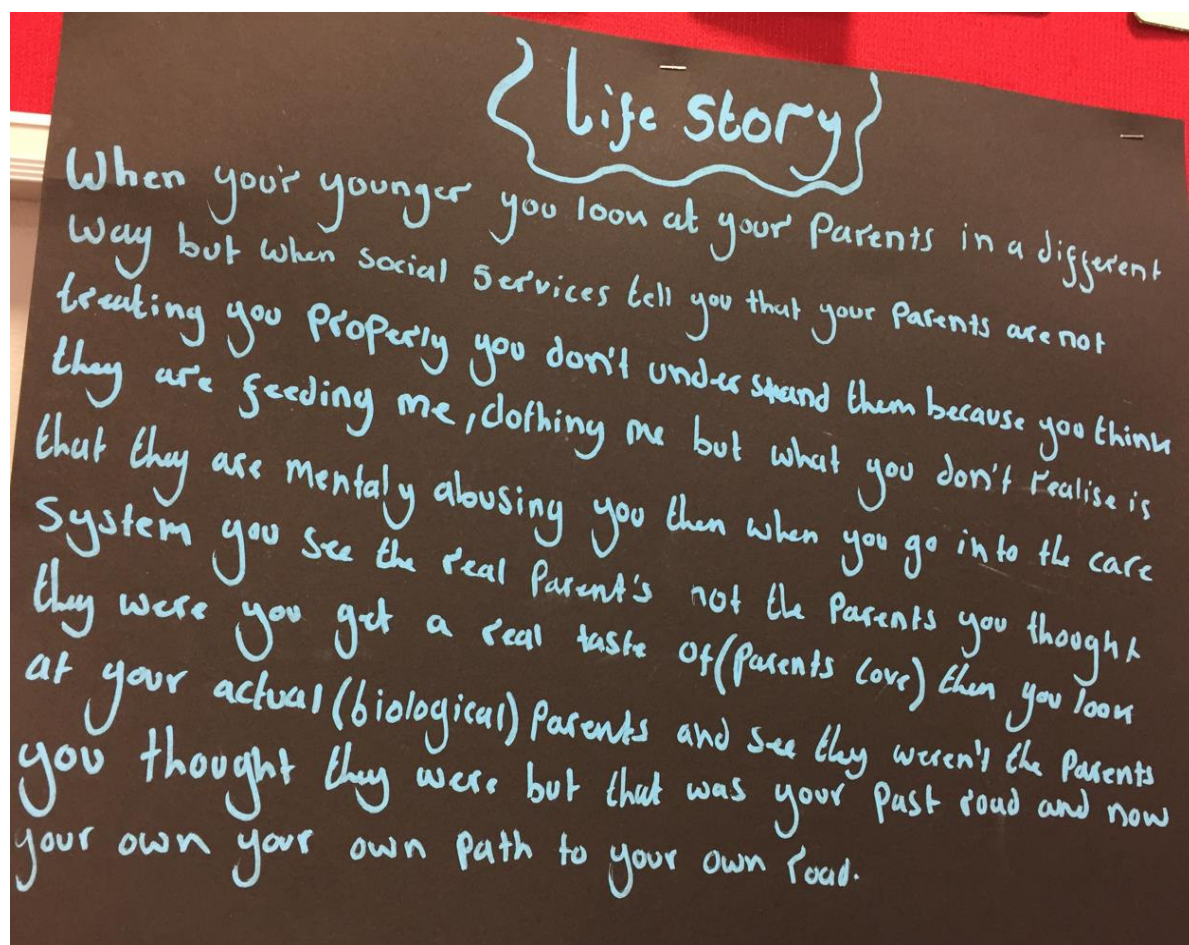 {Life Story}
When your younger you look at your Parents in a different
way but when social services tell you that your Parents are not
treating you properly you don't understand them because you think
they are feeding me, clothing me but what you don't realise is
that they are mentaly abusing you then when you go into the care
System you see the real Parent's not the Parents you thought
they were you get a real taste of (Parents love) then you look
at your actual (biological) Parents and see they weren't the Parents
you thought they were but that was your past road and now
your own your own path to your own road.